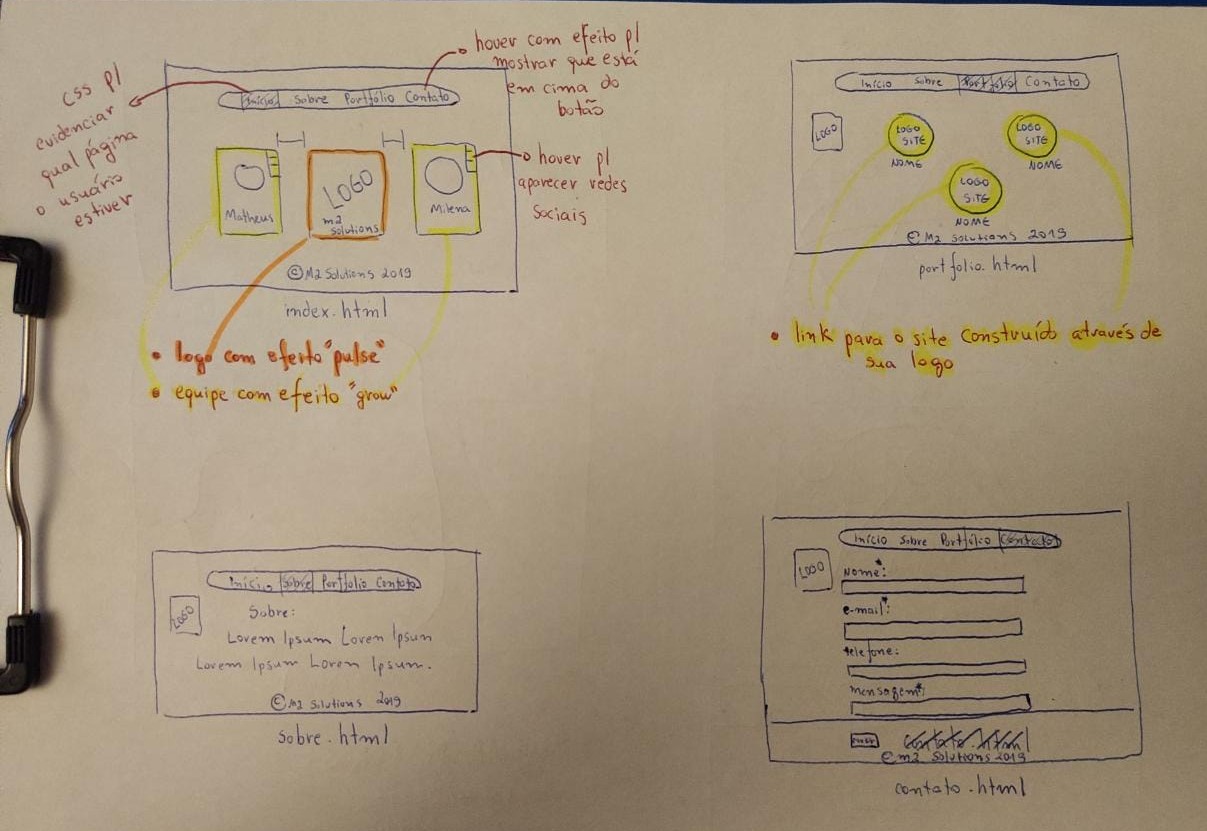 hover com efeito p/
mostrar que está
em cima do
botão
css p/
evidenciar
qual página
o usuário
estiver
Início Sobre Portfólio Contato
hover p/
aparecer redes
sociais
Matheus
LOGO
m2
solutions
Milena
©M2 Solutions 2019
index.html
• logo com efeito "pulse"
• equipe com efeito "grow"
Início Sobre Portfólio Contato
LOGO
LOGO
SITE
NOME
LOGO
SITE
NOME
LOGO
SITE
NOME
©M2 Solutions 2019
portfolio.html
• link para o site construído através de
sua logo
Início Sobre Portfolio Contato
LOGO
Sobre:
Lorem Ipsum Lorem Ipsum
Lorem Ipsum Lorem Ipsum.
©M2 Solutions 2019
sobre.html
Início Sobre Portfólio Contato
LOGO
Nome*:
e-mail*:
telefone:
mensagem*:
contato.html
©m2 Solutions 2019
contato.html